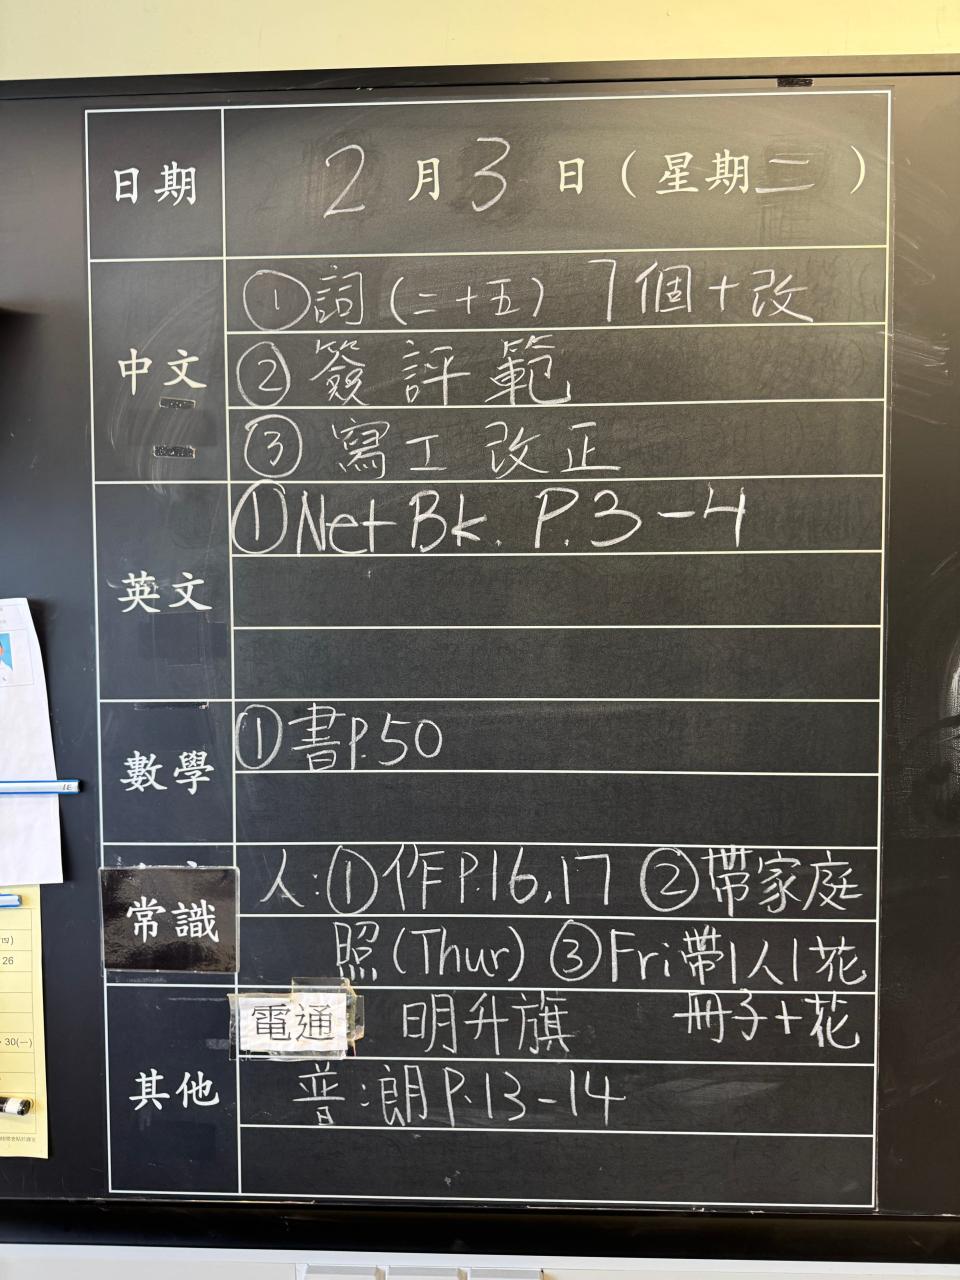 日期 2 月 3 日 ( 星期 二 )
中文
① 詞 (二十五) 7個+改
② 簽 評 範
③ 寫工 改正
英文
① Net Bk. P.3-4
數學
① 書P.50
常識
人:①作P.16,17 ②帶家庭
照(Thur) ③Fri帶1人1花
冊子+花
其他
電通 明升旗
普:朗P.13-14
26
30(一)